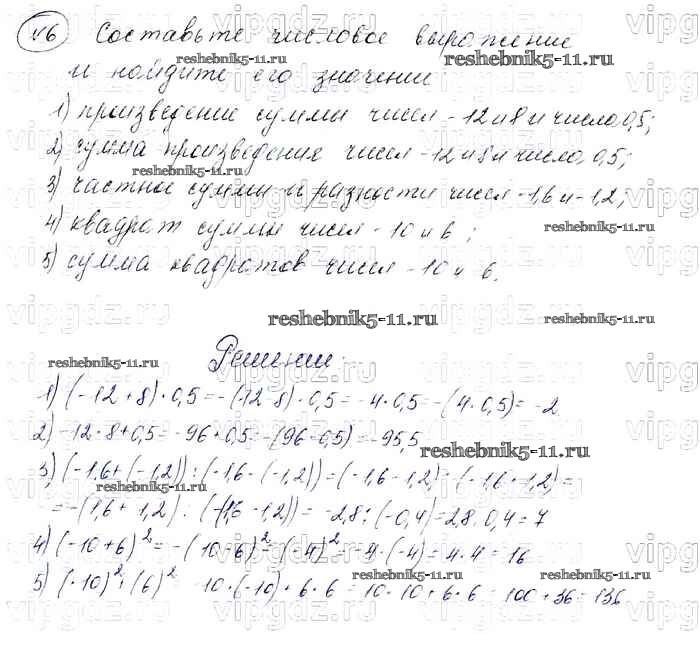 №6 Составьте числовое выражение
и найдите его значении
1) произведении суммы чисел -12 и 8 и число 0,5;
2) сумма произведения чисел -12 и 8 и число 0,5;
3) частное суммы и разности чисел -1,6 и -1,2;
4) квадрат суммы чисел -10 и 6;
5) сумма квадратов чисел -10 и 6.
reshebnik5-11.ru
Решении:
1) (-12+8)·0,5=-(12-8)·0,5=-4·0,5=-(4·0,5)=-2
2) -12·8+0,5=-96+0,5=-(96-0,5)=-95,5
3) (-1,6+(-1,2)):(-1,6-(-1,2))=(-1,6-1,2):(-1,6+1,2)=
=-(1,6+1,2):(-(1,6-1,2))=-2,8:(-0,4)=2,8:0,4=7
4) (-10+6)²=-(10-6)²=(-4)²=-4·(-4)=4·4=16
5) (-10)²+(6)² -10·(-10)+6·6=10·10+6·6=100+36=136